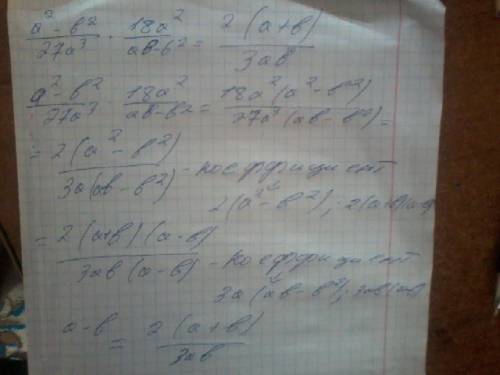 a² - b² / 27a³ · 18a² / ab - b² = 2(a+b) / 3ab
a² - b² / 27a³ · 18a² / ab - b² = 18a²(a² - b²) / 27a³(ab - b²) =
= 2(a² - b²) / 3a(ab - b²) - коеффициент
2(a² - b²); 2(a+b)(a-b)
= 2(a+b)(a-b) / 3ab(a-b) - коеффициент
3a(ab - b²); 3ab(a-b)
a-b = 2(a+b) / 3ab